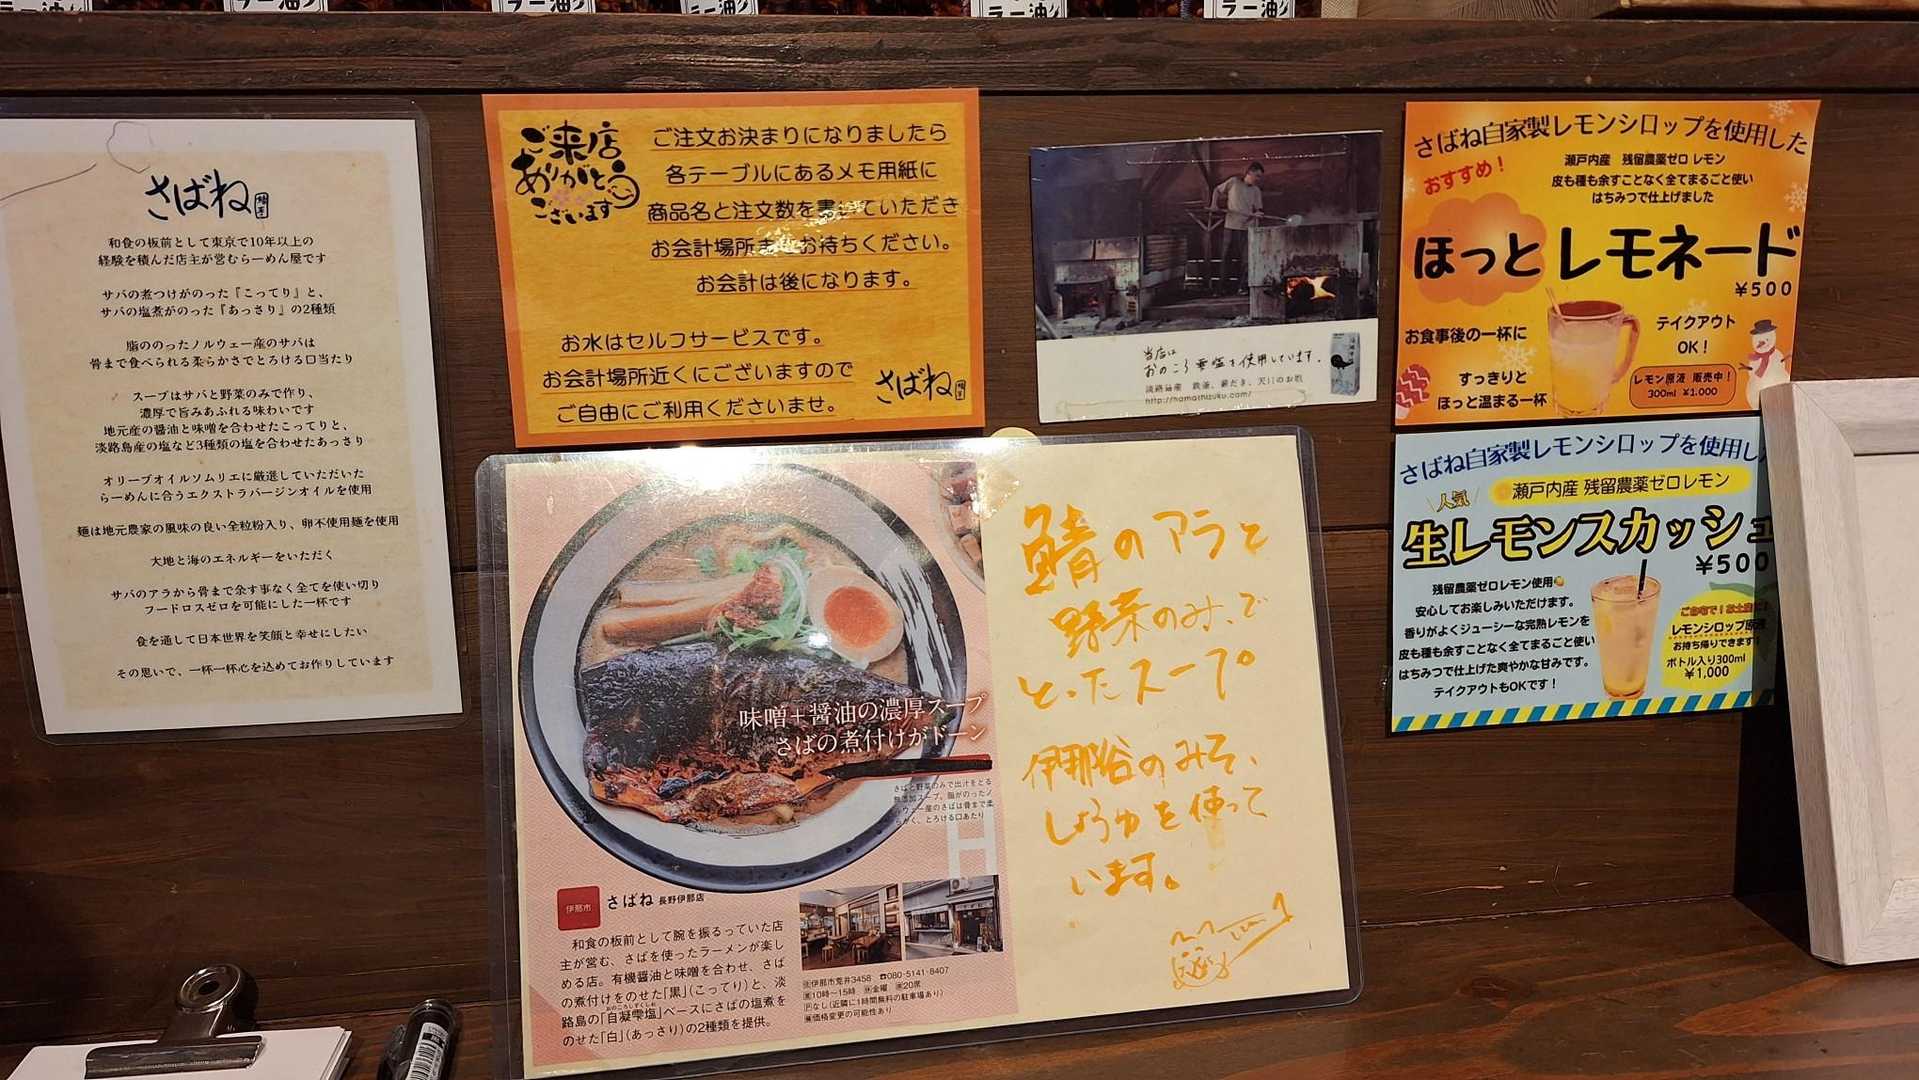 ラー油
ラー油
ラー油
ラー油
ラー油
さばね
和食の板前として東京で10年以上の
経験を積んだ店主が営むらーめん屋です
サバの煮つけがのった『こってり』と、
サバの塩煮がのった『あっさり』の2種類
脂ののったノルウェー産のサバは
骨まで食べられる柔らかさでとろける口当たり
スープはサバと野菜のみで作り、
濃厚で旨みあふれる味わいです
地元産の醤油と味噌を合わせたこってりと、
淡路島産の塩など3種類の塩を合わせたあっさり
オリーブオイルソムリエに厳選していただいた
らーめんに合うエクストラバージンオイルを使用
麺は地元農家の風味の良い全粒粉入り、卵不使用麺を使用
大地と海のエネルギーをいただく
サバのアラから骨まで余す事なく全てを使い切り
フードロスゼロを可能にした一杯です
食を通して日本世界を笑顔と幸せにしたい
その思いで、一杯一杯心を込めてお作りしています
ご来店
ありがとう
ございます
ご注文お決まりになりましたら
各テーブルにあるメモ用紙に
商品名と注文数を書いていただき
お会計場所までお待ちください。
お会計は後になります。
お水はセルフサービスです。
お会計場所近くにございますので
ご自由にご利用くださいませ。
さばね
当店は
おのころ雫塩を使用しています。
淡路島産 鉄釜、薪だき、天日のお塩
http://hamashizuku.com/
さばね自家製レモンシロップを使用した
おすすめ！
瀬戸内産 残留農薬ゼロ レモン
皮も種も余すことなく全てまるごと使い
はちみつで仕上げました
ほっとレモネード
￥500
お食事後の一杯に
すっきりと
ほっと温まる一杯
テイクアウト
OK！
レモン原液 販売中！
300ml ￥1.000
さばね自家製レモンシロップを使用し
人気
瀬戸内産 残留農薬ゼロレモン
生レモンスカッシュ
￥500
残留農薬ゼロレモン使用
安心してお楽しみいただけます。
香りがよくジューシーな完熟レモンを
皮も種も余すことなく全てまるごと使い
はちみつで仕上げた爽やかな甘みです。
テイクアウトもOKです！
ご自宅で！お土産に
レモンシロップ原液
お持ち帰りできます
ボトル入り300ml
￥1,000
味噌＋醤油の濃厚スープ
さばの煮付けがドーン
さばと野菜のみで出汁をとる
無添加スープ。脂がのったノ
ルウェー産のさばは骨まで柔
らかく、とろける口あたり
H
伊那市
さばね 長野伊那店
和食の板前として腕を振るっていた店
主が営む、さばを使ったラーメンが楽し
める店。有機醤油と味噌を合わせ、さば
の煮付けをのせた「黒」(こってり)と、淡
おのころしずくしお
路島の「自凝雫塩」ベースにさばの塩煮を
のせた「白」(あっさり)の2種類を提供。
伊那市荒井3458 ☎080-5141-8407
10時～15時 休金曜 席20席
Pなし(近隣に1時間無料の駐車場あり)
価格変更の可能性あり
鯖のアラと
野菜のみ、で
とったスープ。
伊那谷のみそ、
しょうゆを使って
います。